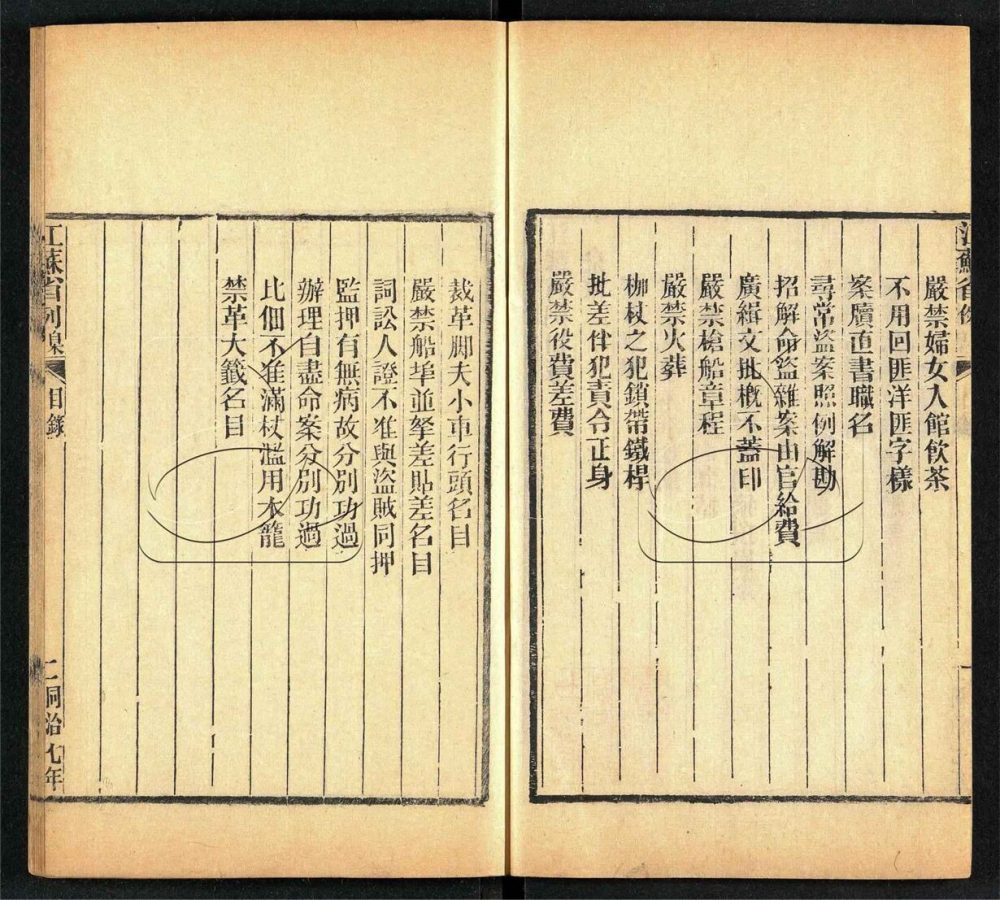 江蘇省例
嚴禁婦女入館飲茶
不用回匪洋匪字樣
案牘直書職名
尋常盜案照例解勘
招解命盜雜案由官給費
廣緝文批概不蓋印
嚴禁槍船章程
嚴禁火葬
枷杖之犯鎖帶鐵桿
批差伴犯責令正身
嚴禁役費差費
裁革脚夫小車行頭名目
嚴禁船埠並拏差貼差名目
詞訟人證不准與盜賊同押
監押有無病故分別功過
辦理自盡命案分別功過
比佃不准滿杖濫用木籠
禁革大籤名目
江蘇省例 臬 目錄 二 同治七年